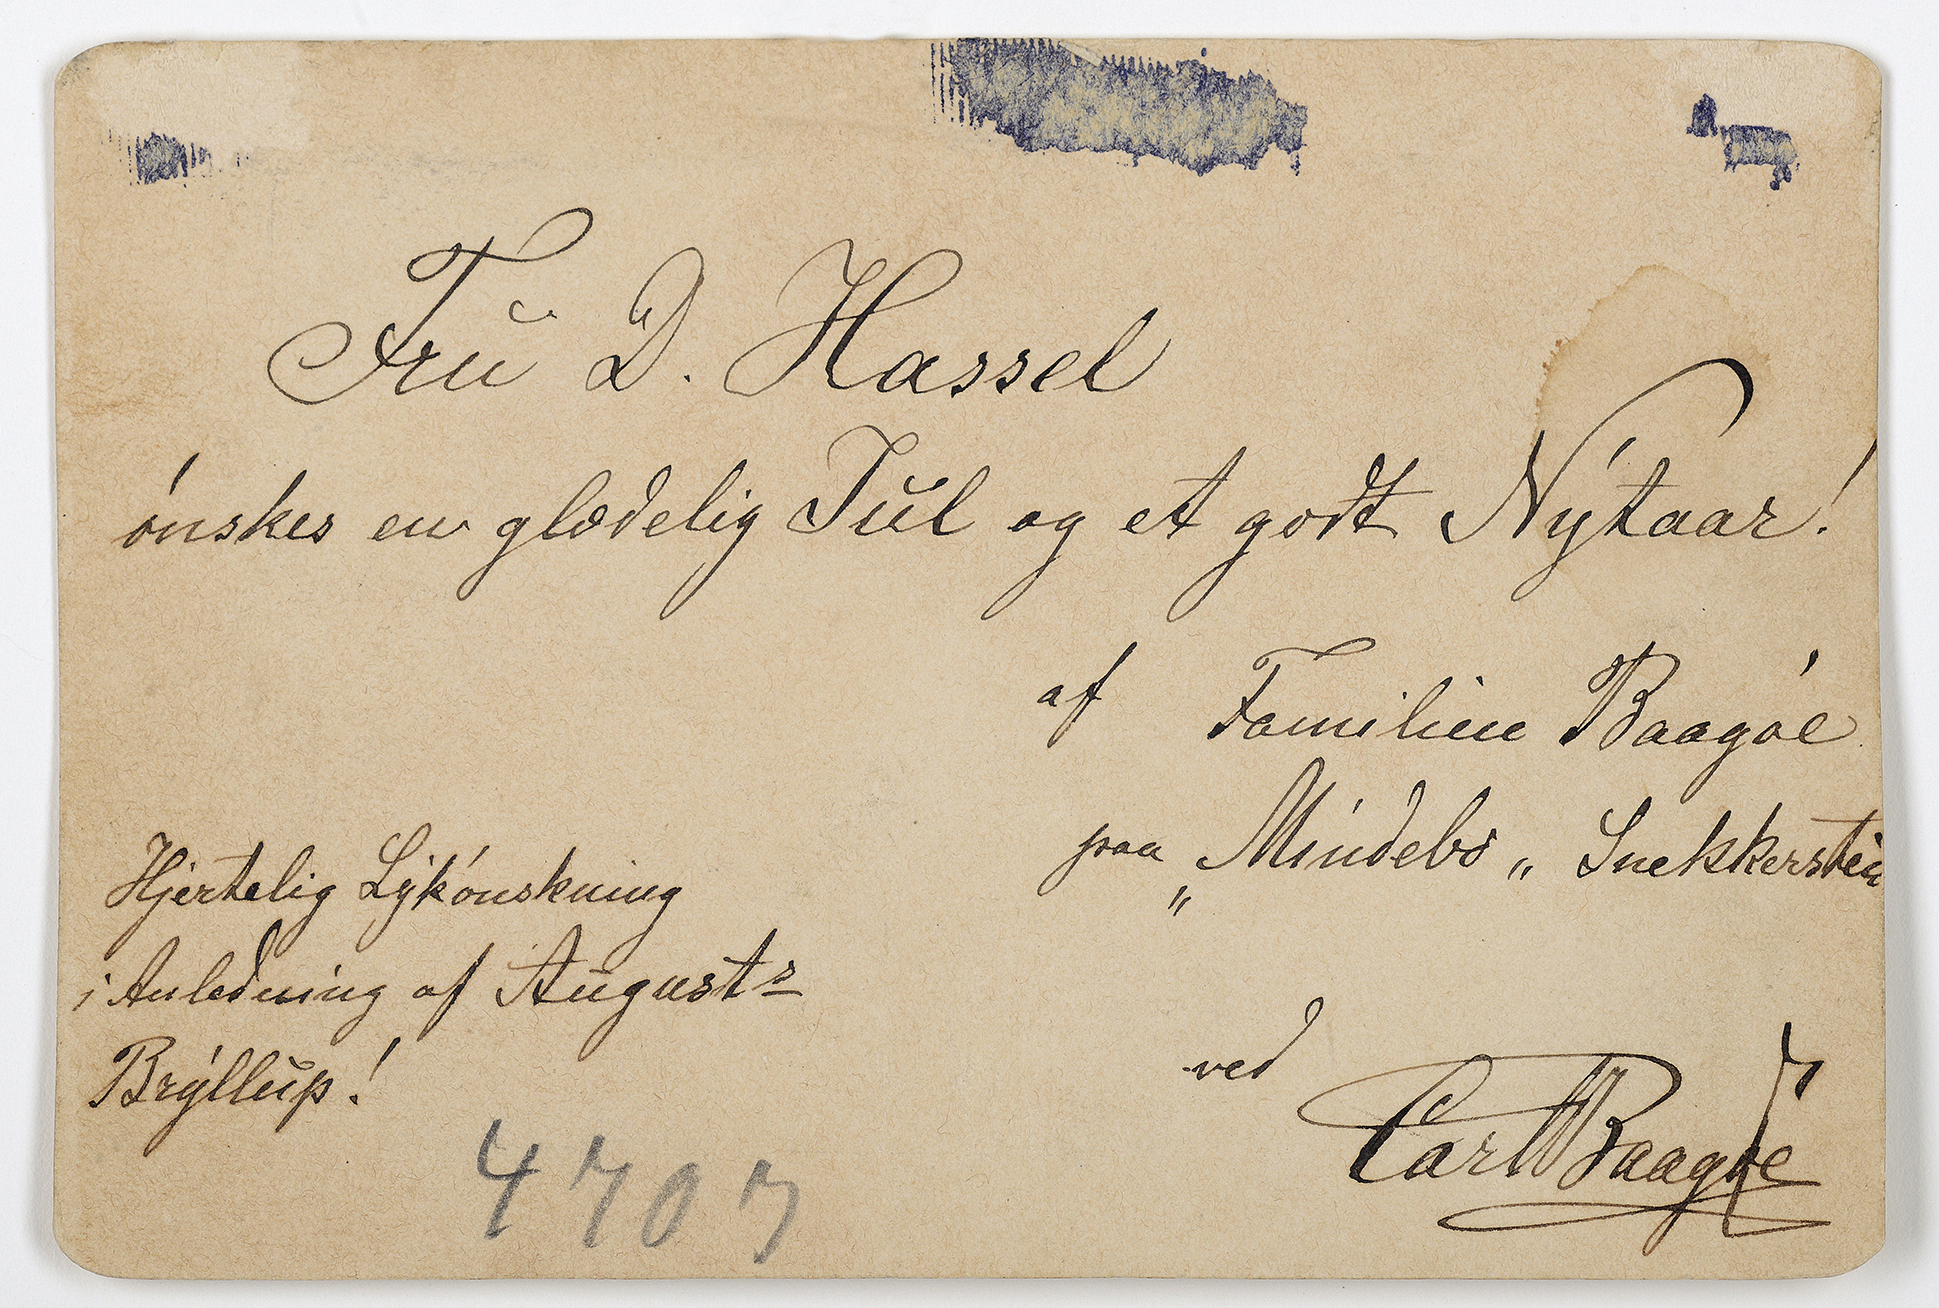 Fru D. Hassel
ønskes en glædelig Jul og et godt Nytaar!
af Familien Baagøe
paa „Mindebo„ Snekkersten
Hjertelig Lykønskning
i Anledning af Augusts
Bryllup!
ved
Carl Baagøe
4707